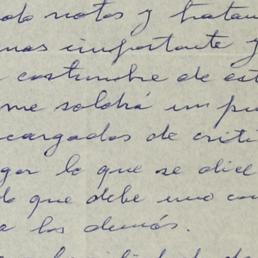 do notas y tratan
mas importante y
costumbre de est
me saldrá un pu
cargados de criti
gar lo que se dice
lo que debe uno con
a los demás.